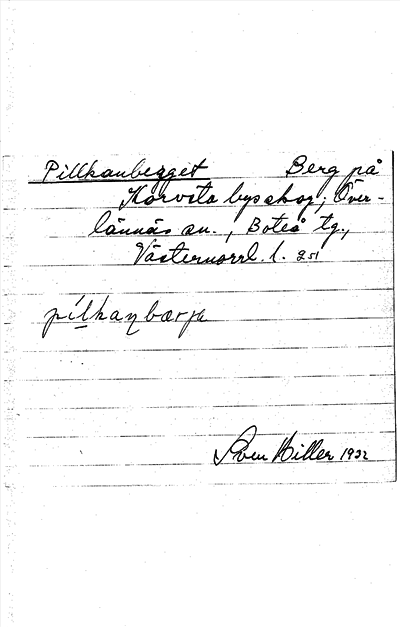 Pillkanberget Berg på
Korvsta byaskog; Över-
lännäs sn., Boteå tg.,
Västernorrl. l. 251
pilkanbærje
Sven Hiller 1932